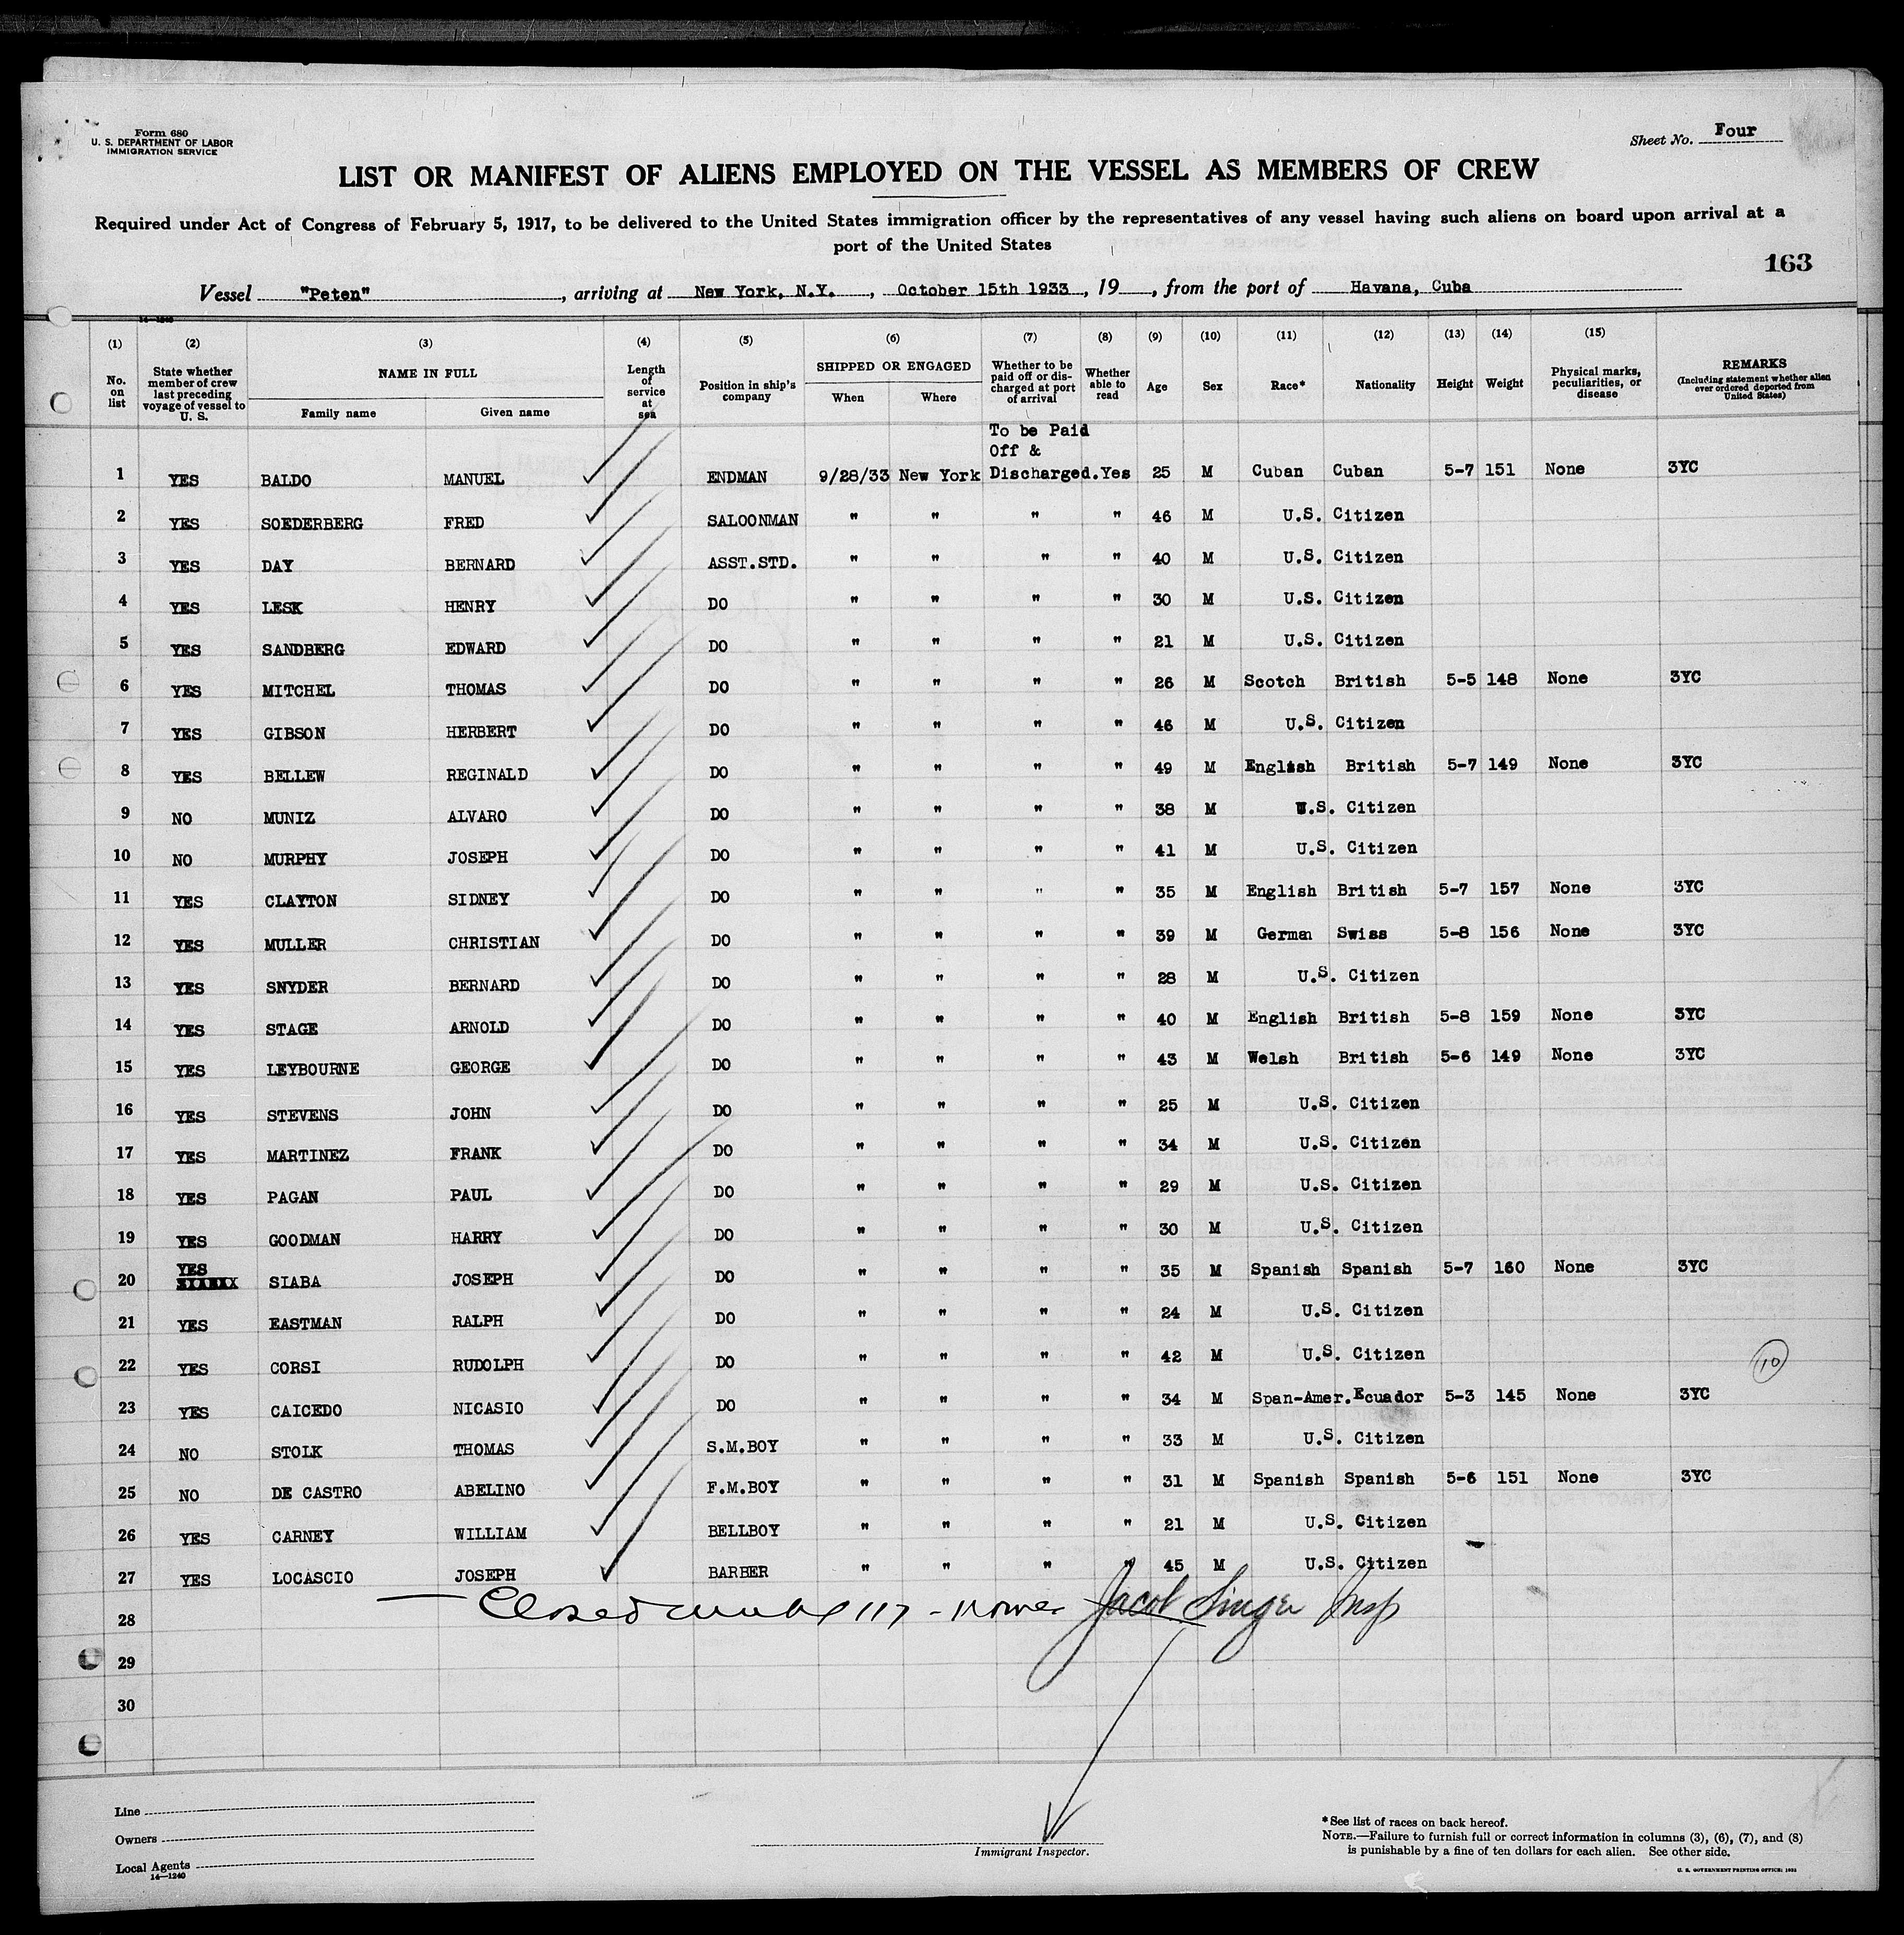 Form 680
U. S. DEPARTMENT OF LABOR
IMMIGRATION SERVICE
Sheet No. Four
LIST OR MANIFEST OF ALIENS EMPLOYED ON THE VESSEL AS MEMBERS OF CREW
Required under Act of Congress of February 5, 1917, to be delivered to the United States immigration officer by the representatives of any vessel having such aliens on board upon arrival at a
port of the United States
163
Vessel "Peten", arriving at New York, N.Y., October 15th 1933, 19, from the port of Havana, Cuba
14—1240
(1) (2) (3) (4) (5) (6) (7) (8) (9) (10) (11) (12) (13) (14) (15)
No. on list State whether member of crew last preceding voyage of vessel to U. S. NAME IN FULL Family name Given name Length of service at sea Position in ship's company SHIPPED OR ENGAGED When Where Whether to be paid off or discharged at port of arrival Whether able to read Age Sex Race* Nationality Height Weight Physical marks, peculiarities, or disease REMARKS (Including statement whether alien ever ordered deported from United States)
To be Paid
Off &
1 YES BALDO MANUEL ENDMAN 9/28/33 New York Discharged. Yes 25 M Cuban Cuban 5-7 151 None 3YC
2 YES SOEDERBERG FRED SALOONMAN " " " " 46 M U.S. Citizen
3 YES DAY BERNARD ASST.STD. " " " " 40 M U.S. Citizen
4 YES LESK HENRY DO " " " " 30 M U.S. Citizen
5 YES SANDBERG EDWARD DO " " " " 21 M U.S. Citizen
6 YES MITCHEL THOMAS DO " " " " 26 M Scotch British 5-5 148 None 3YC
7 YES GIBSON HERBERT DO " " " " 46 M U.S. Citizen
8 YES BELLEW REGINALD DO " " " " 49 M English British 5-7 149 None 3YC
9 NO MUNIZ ALVARO DO " " " " 38 M U.S. Citizen
10 NO MURPHY JOSEPH DO " " " " 41 M U.S. Citizen
11 YES CLAYTON SIDNEY DO " " " " 35 M English British 5-7 157 None 3YC
12 YES MULLER CHRISTIAN DO " " " " 39 M German Swiss 5-8 156 None 3YC
13 YES SNYDER BERNARD DO " " " " 28 M U.S. Citizen
14 YES STAGE ARNOLD DO " " " " 40 M English British 5-8 159 None 3YC
15 YES LEYBOURNE GEORGE DO " " " " 43 M Welsh British 5-6 149 None 3YC
16 YES STEVENS JOHN DO " " " " 25 M U.S. Citizen
17 YES MARTINEZ FRANK DO " " " " 34 M U.S. Citizen
18 YES PAGAN PAUL DO " " " " 29 M U.S. Citizen
19 YES GOODMAN HARRY DO " " " " 30 M U.S. Citizen
20 YES SIABA JOSEPH DO " " " " 35 M Spanish Spanish 5-7 160 None 3YC
21 YES EASTMAN RALPH DO " " " " 24 M U.S. Citizen
22 YES CORSI RUDOLPH DO " " " " 42 M U.S. Citizen
10
23 YES CAICEDO NICASIO DO " " " " 34 M Span-Amer. Ecuador 5-3 145 None 3YC
24 NO STOLK THOMAS S.M.BOY " " " " 33 M U.S. Citizen
25 NO DE CASTRO ABELINO F.M.BOY " " " " 31 M Spanish Spanish 5-6 151 None 3YC
26 YES CARNEY WILLIAM BELLBOY " " " " 21 M U.S. Citizen
27 YES LOCASCIO JOSEPH BARBER " " " " 45 M U.S. Citizen
28 Closed 117 - Jacob Singer Insp
29
30
Line
Owners
Local Agents
14—1240
Immigrant Inspector.
*See list of races on back hereof.
NOTE.—Failure to furnish full or correct information in columns (3), (6), (7), and (8)
is punishable by a fine of ten dollars for each alien. See other side.
U. S. GOVERNMENT PRINTING OFFICE: 1932